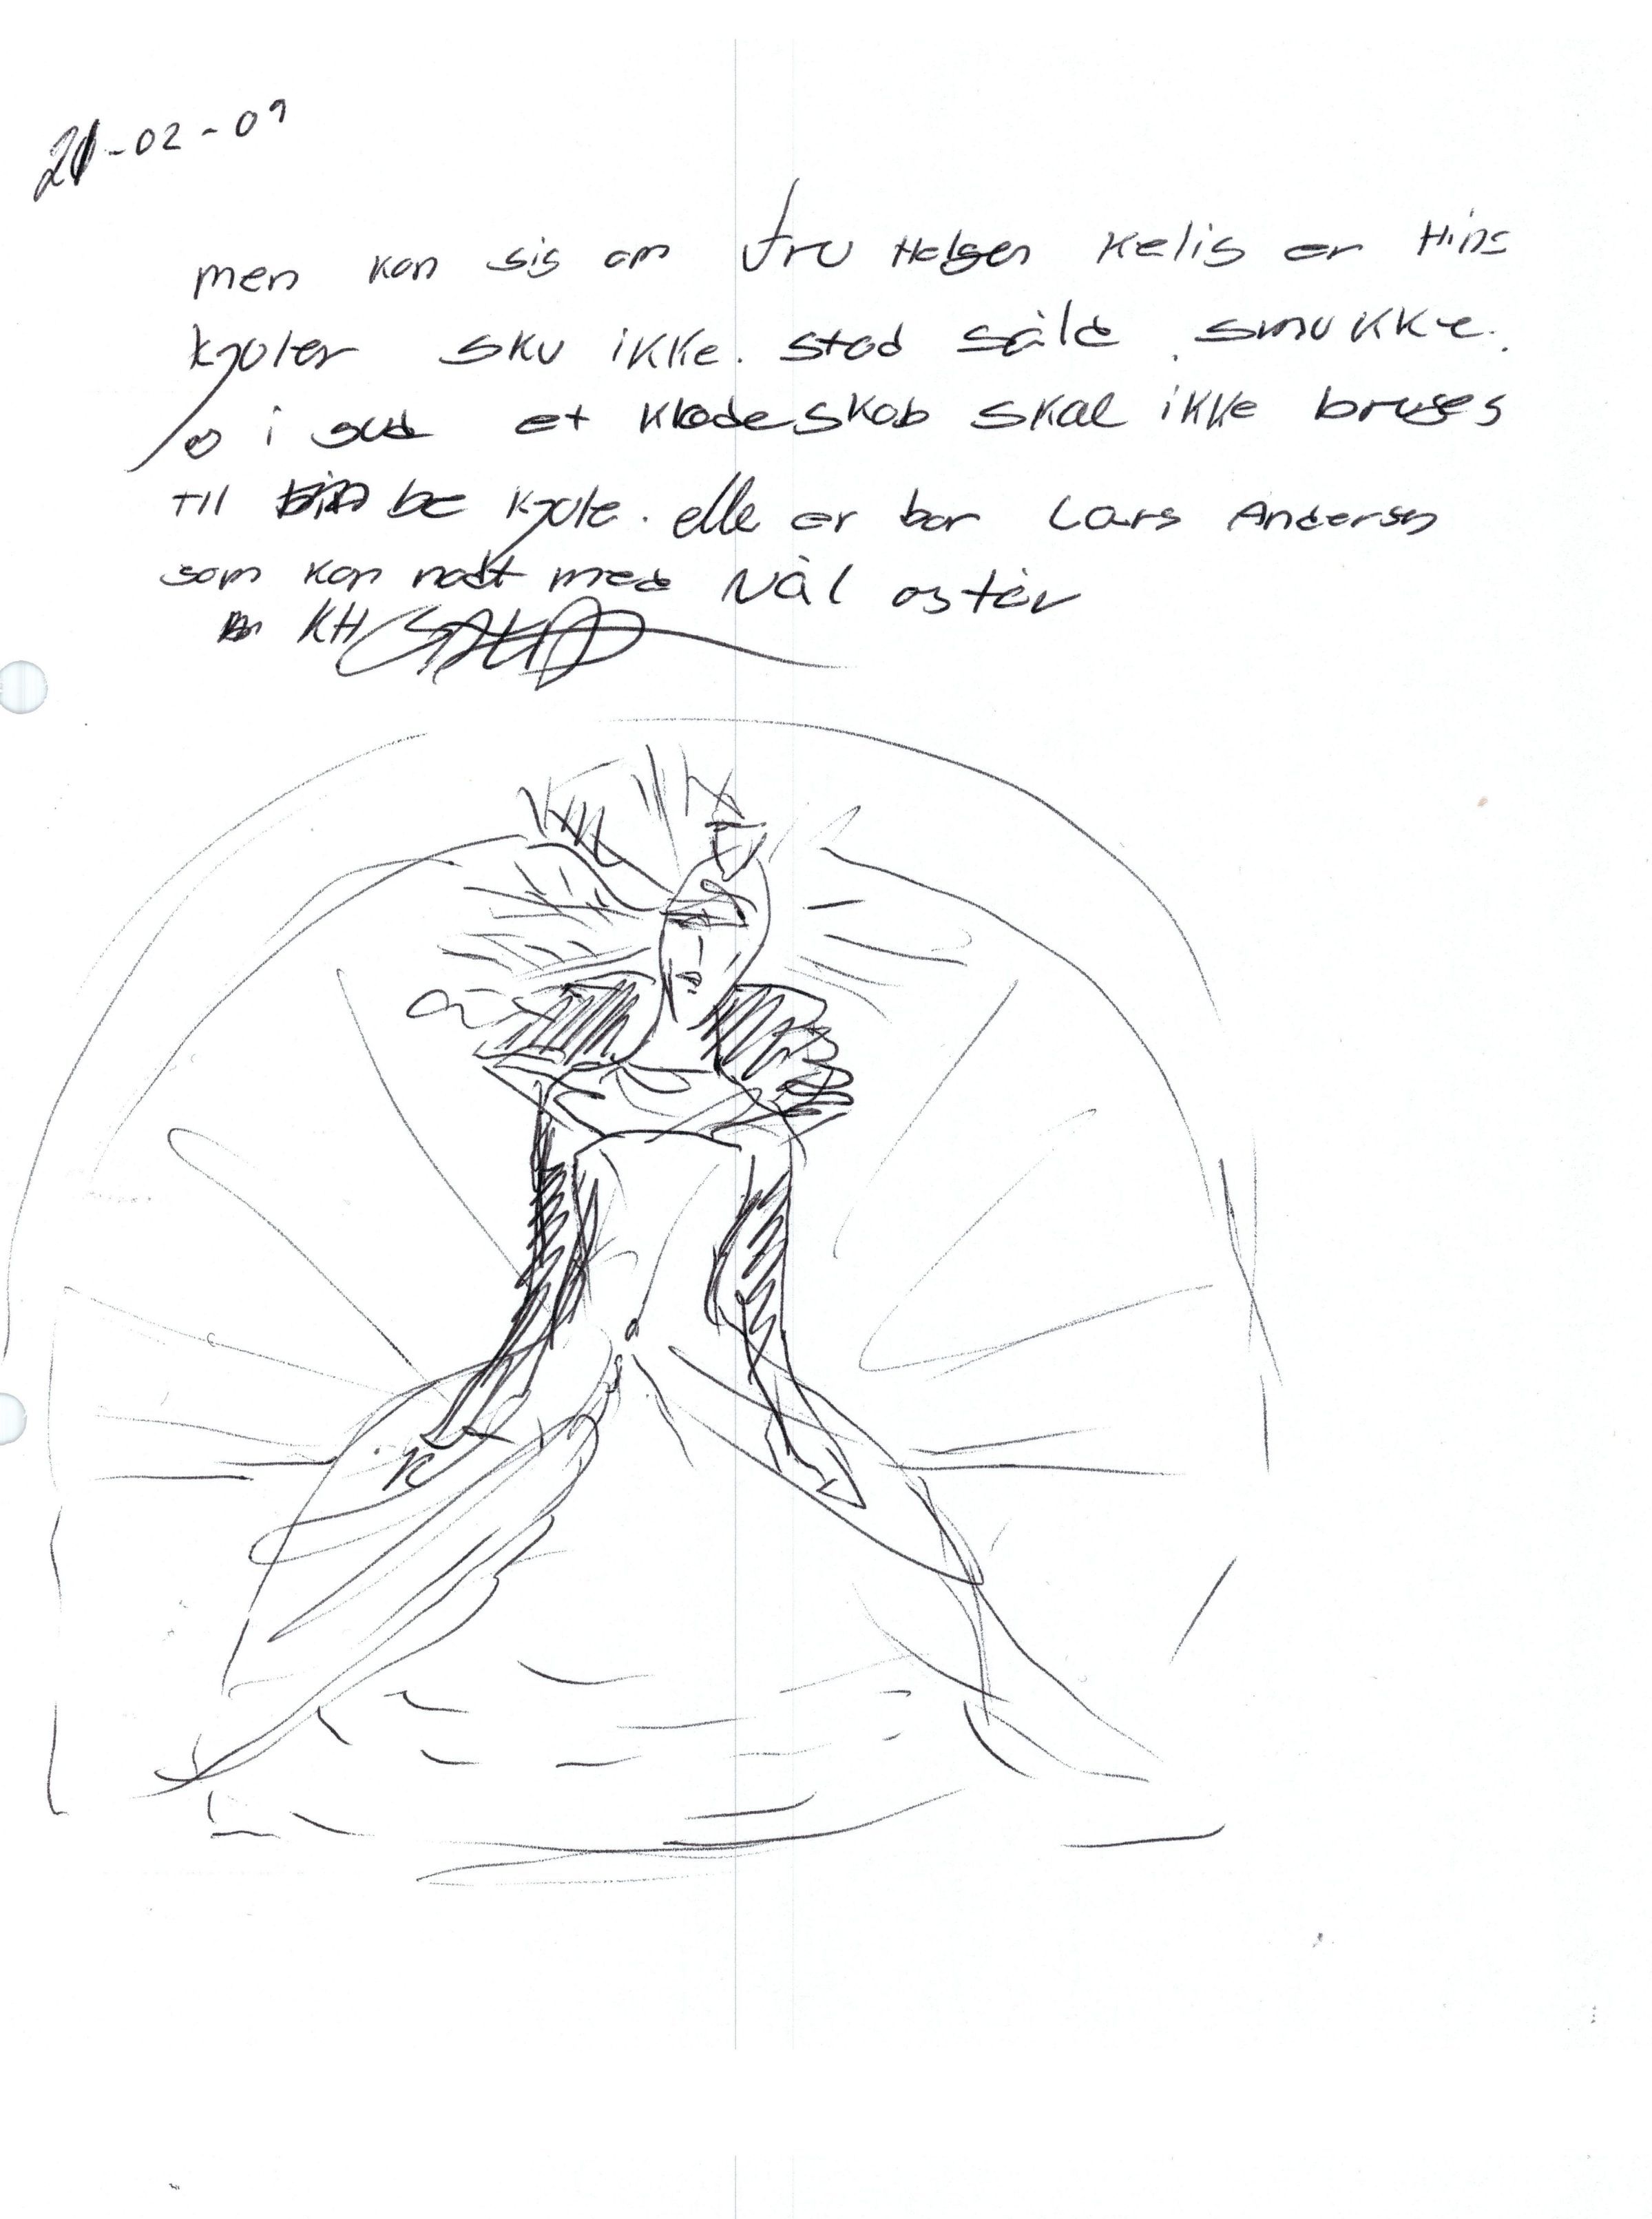 21-02-09
men kan sig om fru Helsen Kelig er Hins
kjoler sku ikke. stad såld. smukke.
i gud et kladeskab skal ikke bruges
til be kjole. elle er bar Lars Andersn
som kan nått med Nål og tåv
KH